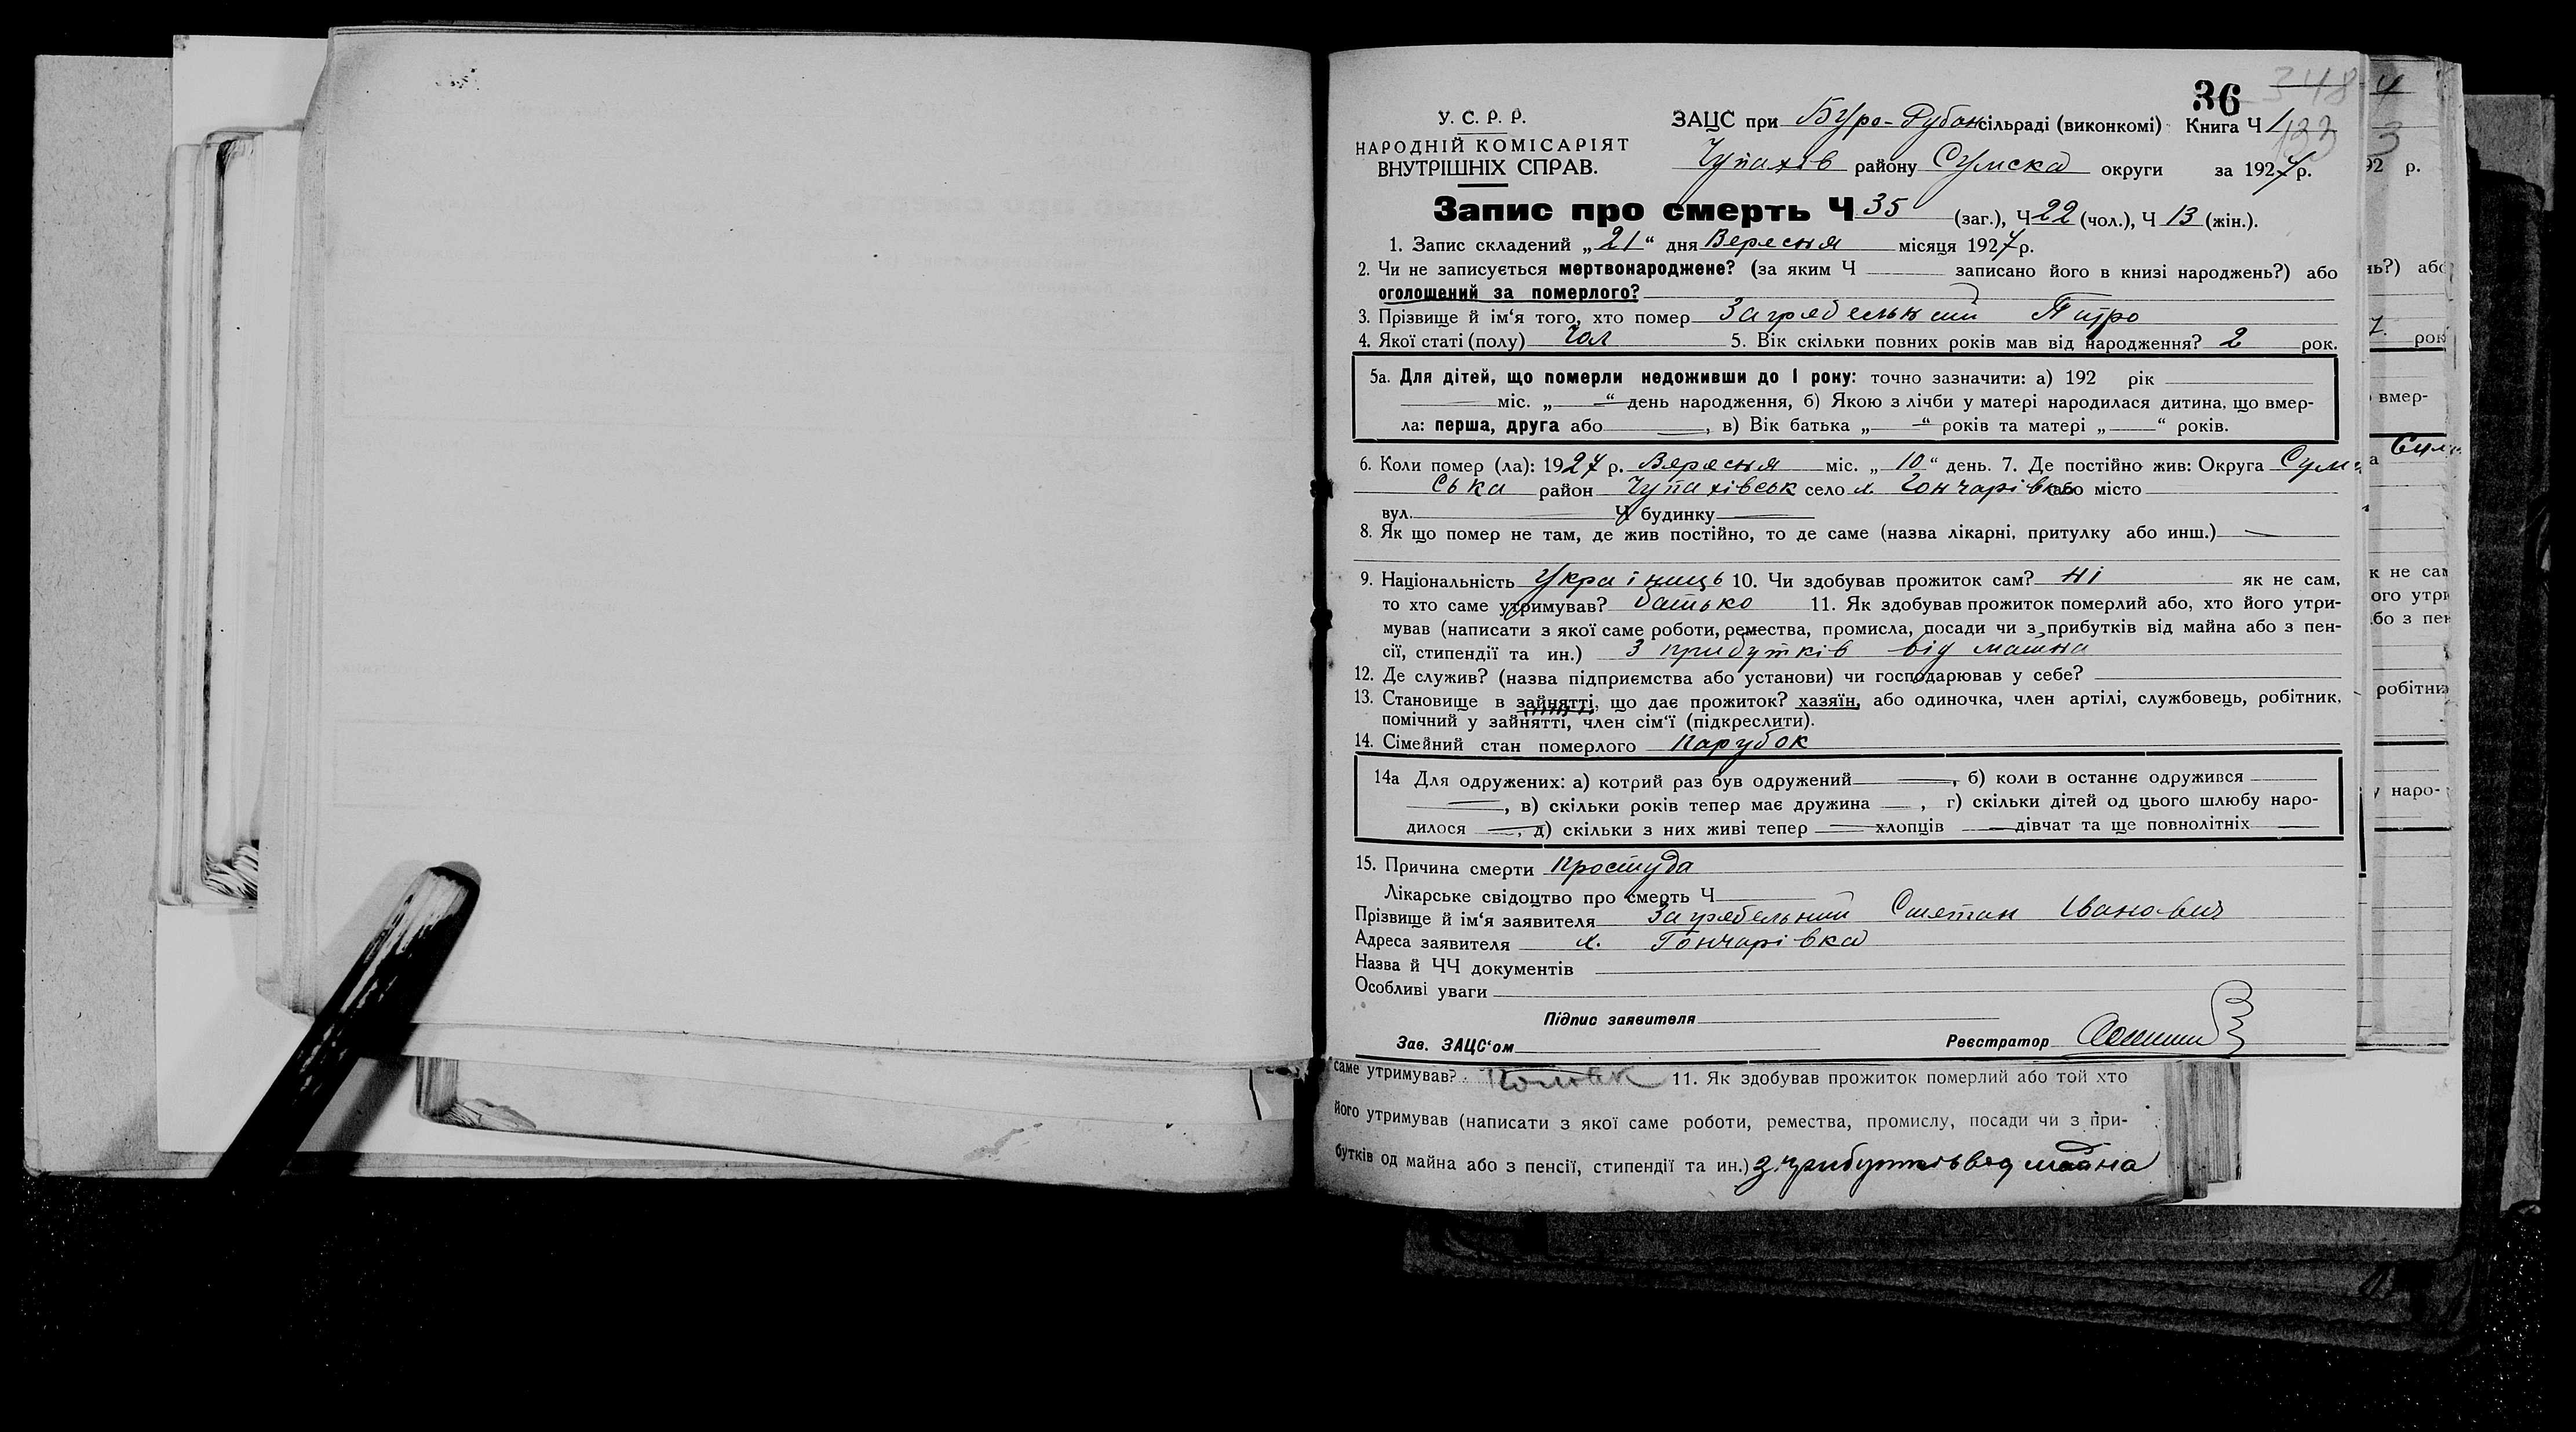 36 348
У. С. Р. Р.
НАРОДНІЙ КОМІСАРІЯТ
ВНУТРІШНІХ СПРАВ.
ЗАЦС при Буро-Рубан сільраді (виконкомі) Книга Ч 1
Чупахів району Сумска округи за 1927 р.
Запис про смерть Ч 35 (заг.), Ч 22 (чол.), Ч 13 (жін.).
1. Запис складений „ 21 “ дня Вересня місяця 1927 р.
2. Чи не записується мертвонароджене? (за яким Ч записано його в книзі народжень?) або
оголошений за померлого?
3. Прізвище й ім‘я того, хто помер Загребельний Питро
4. Якої статі (полу) Чол 5. Вік скільки повних років мав від народження? 2 рок.
5а. Для дітей, що померли недоживши до 1 року: точно зазначити: а) 192 рік
міс. „ “ день народження, б) Якою з лічби у матері народилася дитина, що вмер-
ла: перша, друга або , в) Вік батька „ “ років та матері „ “ років.
6. Коли помер (ла): 1927 р. Вересня міс. „ 10 “ день. 7. Де постійно жив: Округа Сум-
ська район Чупахівськ село х. Гончарівка або місто
вул. Ч будинку
8. Як що помер не там, де жив постійно, то де саме (назва лікарні, притулку або инш.)
9. Національність Україниць 10. Чи здобував прожиток сам? Ні як не сам,
то хто саме утримував? батько 11. Як здобував прожиток померлий або, хто його утри-
мував (написати з якої саме роботи, ремества, промисла, посади чи з прибутків від майна або з пен-
сії, стипендії та ин.) З прибутків від маина
12. Де служив? (назва підприємства або установи) чи господарював у себе?
13. Становище в зайнятті, що дає прожиток? хазяїн, або одиночка, член артілі, службовець, робітник,
помічний у зайнятті, член сім‘ї (підкреслити).
14. Сімейний стан померлого Парубок
14а Для одружених: а) котрий раз був одружений , б) коли в останнє одружився
, в) скільки років тепер має дружина , г) скільки дітей од цього шлюбу наро-
дилося , д) скільки з них живі тепер хлопців дівчат та ще повнолітніх
15. Причина смерти Простуда
Лікарське свідоцтво про смерть Ч
Прізвище й ім‘я заявителя Загребельний Степан Іванович
Адреса заявителя х. Гончарівка
Назва й ЧЧ документів
Особливі уваги
Підпис заявителя
Зав. ЗАЦС‘ом Реєстратор
саме утримував? 11. Як здобував прожиток померлий або той хто
його утримував (написати з якої саме роботи, ремества, промислу, посади чи з при-
бутків од майна або з пенсії, стипендії та ин.) З прибутків від майна
92 р.
нь?) або
рок
вмер-
к не сам
ого утри
бо з пен
робітник
у наро-